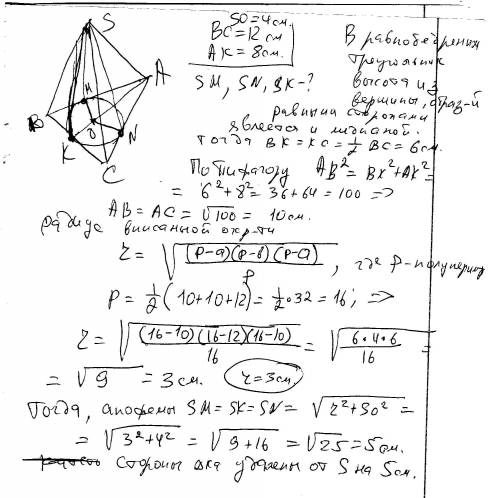 S
M
A
B
O
N
K
C
SO=4см.
BC=12см
AK=8см.
SM, SN, SK-?
В равнобедренн
треугольник
высота из
вершины, образ-й
равными сторонами
является и медианой.
Тогда BK=KC=½BC=6см.
По Пифагору AB²=BK²+AK²=
=6²+8²=36+64=100 =>
AB=AC=√100=10см.
радиус вписанной окр-ти
r=√((p-a)(p-b)(p-a)/p), где p-полупериод
P=½(10+10+12)=½·32=16; =>
r=√((16-10)(16-12)(16-10)/16)=√(6·4·6/16)=
=√9=3см. r=3см,
Тогда, апофемы SM=SK=SN=√(r²+SO²)=
=√(3²+4²)=√(9+16)=√25=5см.
стороны удалены от S на 5см.